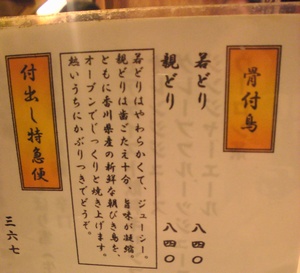 骨付鳥
若どり 八四〇
親どり 八四〇
若どりはやわらかくて、ジューシー。
親どりは歯ごたえ十分、旨味が凝縮。
ともに香川県産の新鮮な朝びき鳥を、
オーブンでじっくりと焼き上げます。
熱いうちにかぶりつきでどうぞ。
付出し特急便
三六七